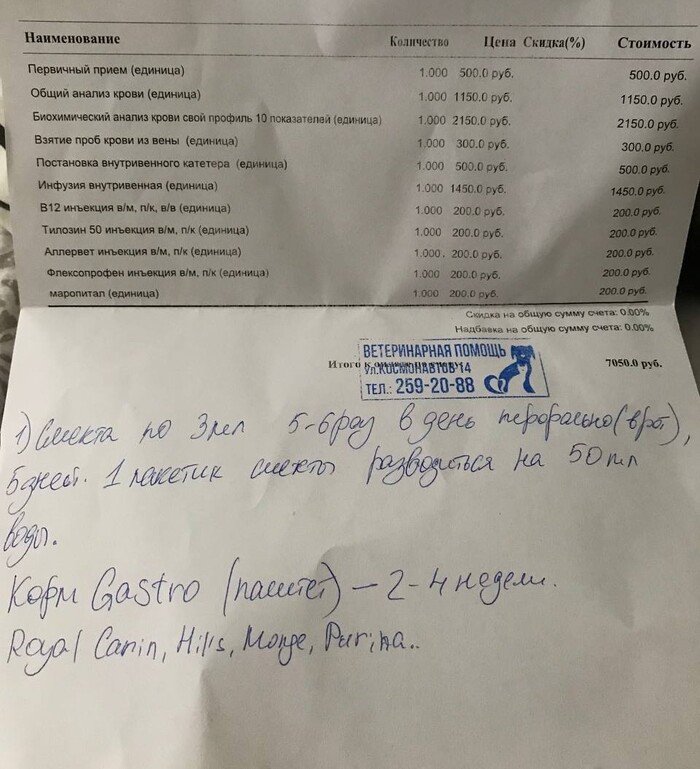 Наименование Количество Цена Скидка(%) Стоимость
Первичный прием (единица) 1.000 500.0 руб. 500.0 руб.
Общий анализ крови (единица) 1.000 1150.0 руб. 1150.0 руб.
Биохимический анализ крови свой профиль 10 показателей (единица) 1.000 2150.0 руб. 2150.0 руб.
Взятие проб крови из вены (единица) 1.000 300.0 руб. 300.0 руб.
Постановка внутривенного катетера (единица) 1.000 500.0 руб. 500.0 руб.
Инфузия внутривенная (единица) 1.000 1450.0 руб. 1450.0 руб.
В12 инъекция в/м, п/к, в/в (единица) 1.000 200.0 руб. 200.0 руб.
Тилозин 50 инъекция в/м, п/к (единица) 1.000 200.0 руб. 200.0 руб.
Аллервет инъекция в/м, п/к (единица) 1.000 200.0 руб. 200.0 руб.
Флексопрофен инъекция в/м, п/к (единица) 1.000 200.0 руб. 200.0 руб.
маропитал (единица) 1.000 200.0 руб. 200.0 руб.
Скидка на общую сумму счета: 0.00%
Надбавка на общую сумму счета: 0.00%
Итого 7050.0 руб.
ВЕТЕРИНАРНАЯ ПОМОЩЬ
УЛ.КОСМОНАВТОВ 14
ТЕЛ.: 259-20-88
1) Смекта по 3мл 5-6раз в день перорально(в рот),
5дней. 1 пакетик смекты разводиться на 50мл
воды.
Корм Gastro (паштет) – 2-4 недели.
Royal Canin, Hills, Monge, Purina..